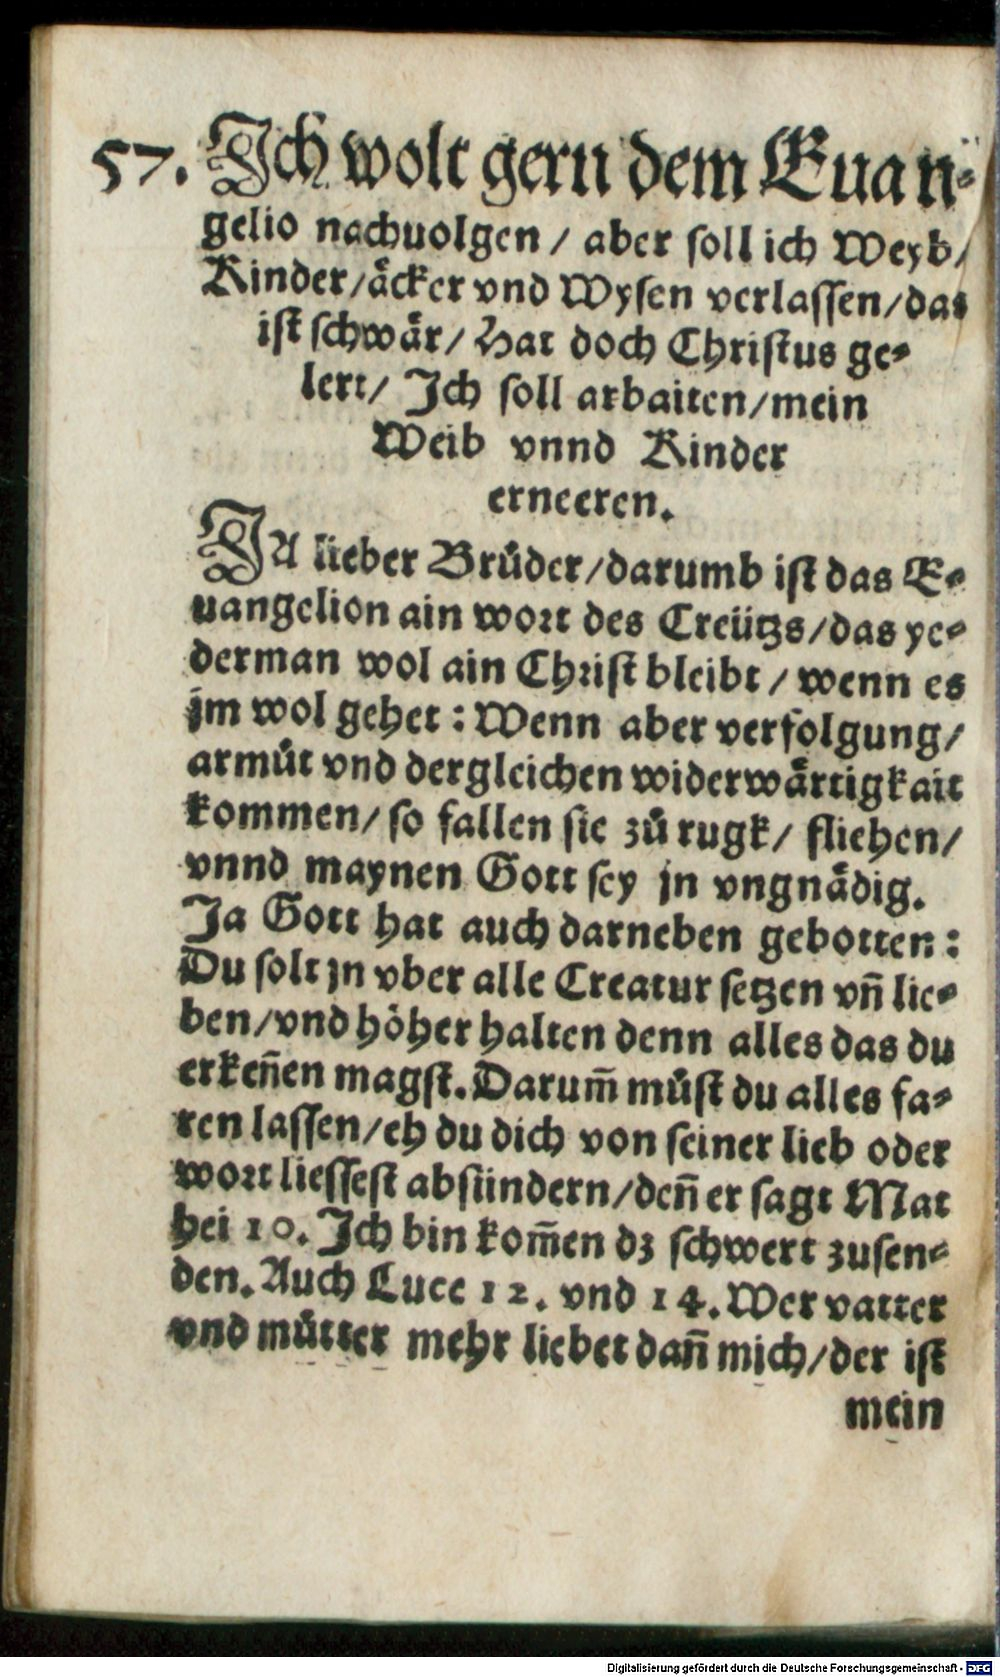 57. Ich wolt gern dem Euan⸗
gelio nachuolgen / aber soll ich Weyb /
Kinder / aͤcker vnd Wysen verlassen / das
ist schwaͤr / Hat doch Christus ge⸗
lert / Ich soll arbaiten / mein
Weib vnnd Kinder
erneeren.
JA lieber Bruͤder / darumb ist das E⸗
uangelion ain wort des Creützs / das ye⸗
derman wol ain Christ bleibt / wenn es
jm wol gehet : Wenn aber verfolgung /
armuͤt vnd dergleichen widerwaͤrtigkait
kommen / so fallen sie zuͤ rugk / fliehen /
vnnd maynen Gott sey jn vngnaͤdig.
Ja Gott hat auch darneben gebotten :
Du solt jn vber alle Creatur setzen vn̄ lie⸗
ben / vnd hoͤher halten denn alles das du
erken̄en magst. Darum̄ muͤst du alles fa⸗
ren lassen / eh du dich von seiner lieb oder
wort liessest absündern / den̄ er sagt Mat
hei 10. Ich bin kom̄en dz schwert zusen⸗
den. Auch Luce 12. vnd 14. Wer vatter
vnd muͤtter mehr liebet dan̄ mich / der ist
mein
Digitalisierung gefördert durch die Deutsche Forschungsgemeinschaft - DFG